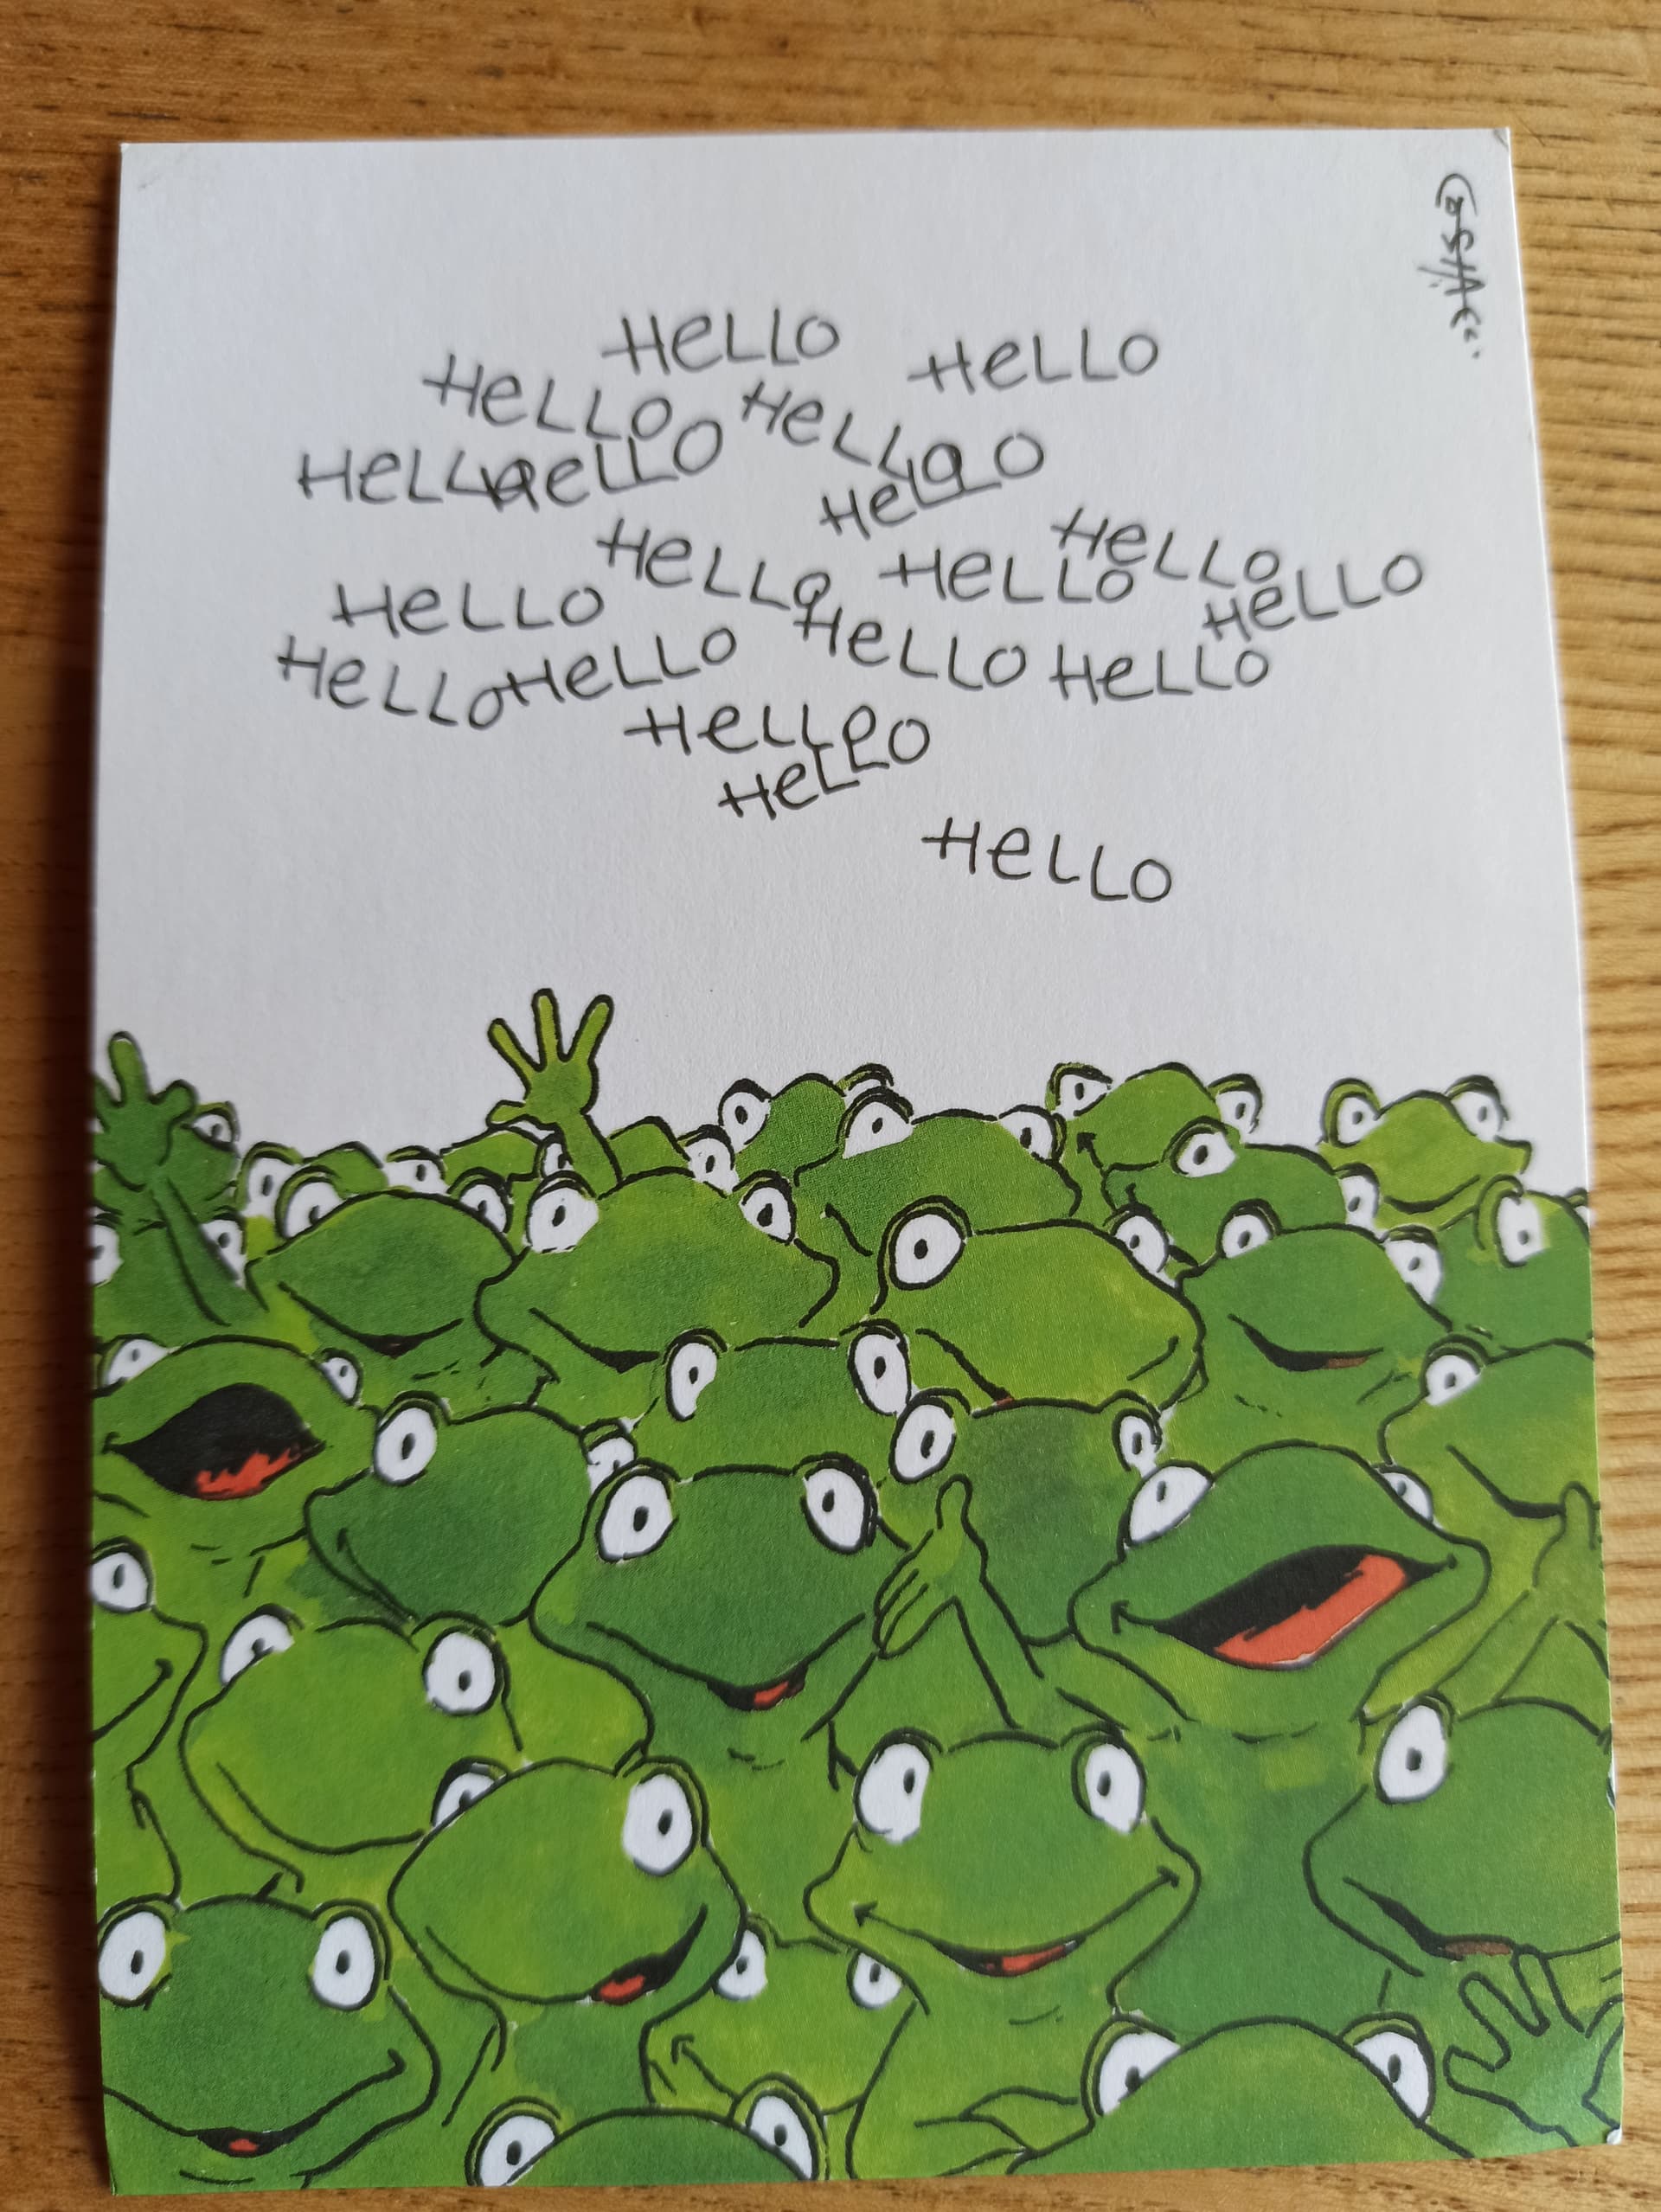 HeLLO HeLLO
HeLLO HeLLO
HeLLO HeLLO HeLLO
HeLLO HeLLO HeLLO
HeLLO HeLLO
HeLLO HeLLO HeLLO HeLLO
HeLLO
HeLLO
HeLLO